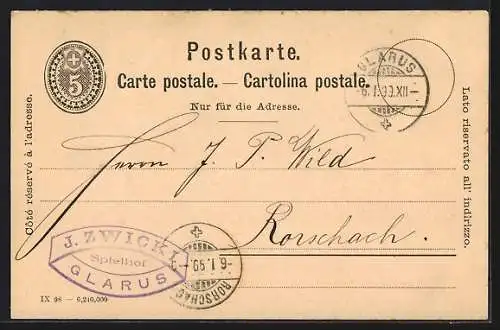 Postkarte.
Carte postale. — Cartolina postale.
Nur für die Adresse.
5
GLARUS
-6.I.99.XII-
Côté réservé à l'adresse.
Lato riservato all' indirizzo.
Herrn J. P. Wild
Rorschach.
J. ZWICKI
Spielhof
GLARUS
-6.I.99.-
RORSCHACH
IX 98 — 6,210,000